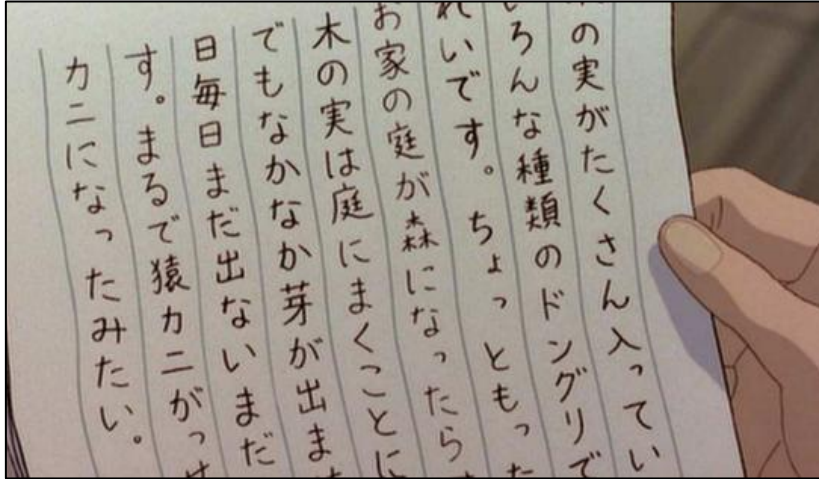 の実がたくさん入ってい
ろんな種類のドングリで
れいです。ちょっともった
お家の庭が森になったら
木の実は庭にまくことに
でもなかなか芽が出ま
日毎日まだ出ないまだ
す。まるで猿カニがっせ
カニになったみたい。